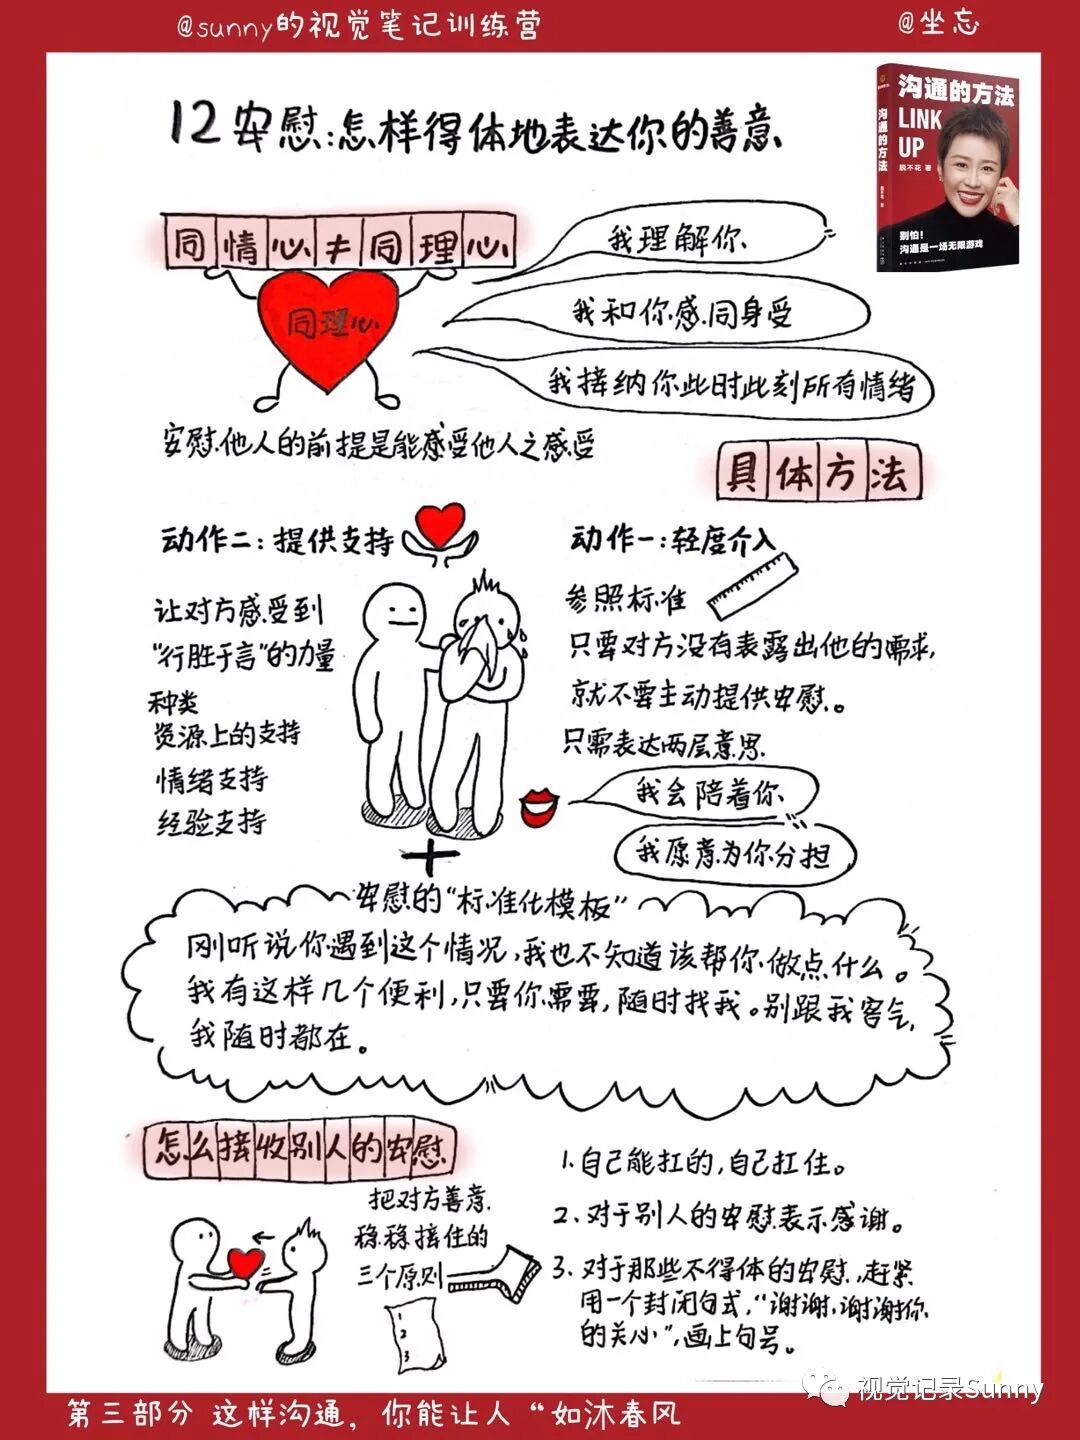 @sunny的视觉笔记训练营
@坐忘
12安慰:怎样得体地表达你的善意
沟通的方法
LINK
UP
脱不花 著
沟通的方法
别怕!
沟通是一场无限游戏
同情心≠同理心
同理心
我理解你
我和你感同身受
我接纳你此时此刻所有情绪
安慰他人的前提是能感受他人之感受
具体方法
动作二:提供支持
让对方感受到
“行胜于言”的力量
种类
资源上的支持
情绪支持
经验支持
动作一:轻度介入
参照标准
只要对方没有表露出他的需求,
就不要主动提供安慰。
只需表达两层意思
我会陪着你
我愿意为你分担
+
安慰的“标准化模板”
刚听说你遇到这个情况,我也不知道该帮你做点什么。
我有这样几个便利,只要你需要,随时找我。别跟我客气,
我随时都在。
怎么接收别人的安慰
把对方善意
稳稳接住的
三个原则
1
2
3
1.自己能扛的,自己扛住。
2.对于别人的安慰表示感谢。
3.对于那些不得体的安慰,赶紧
用一个封闭句式,“谢谢,谢谢你
的关心”,画上句号。
视觉记录Sunny
第三部分 这样沟通,你能让人“如沐春风